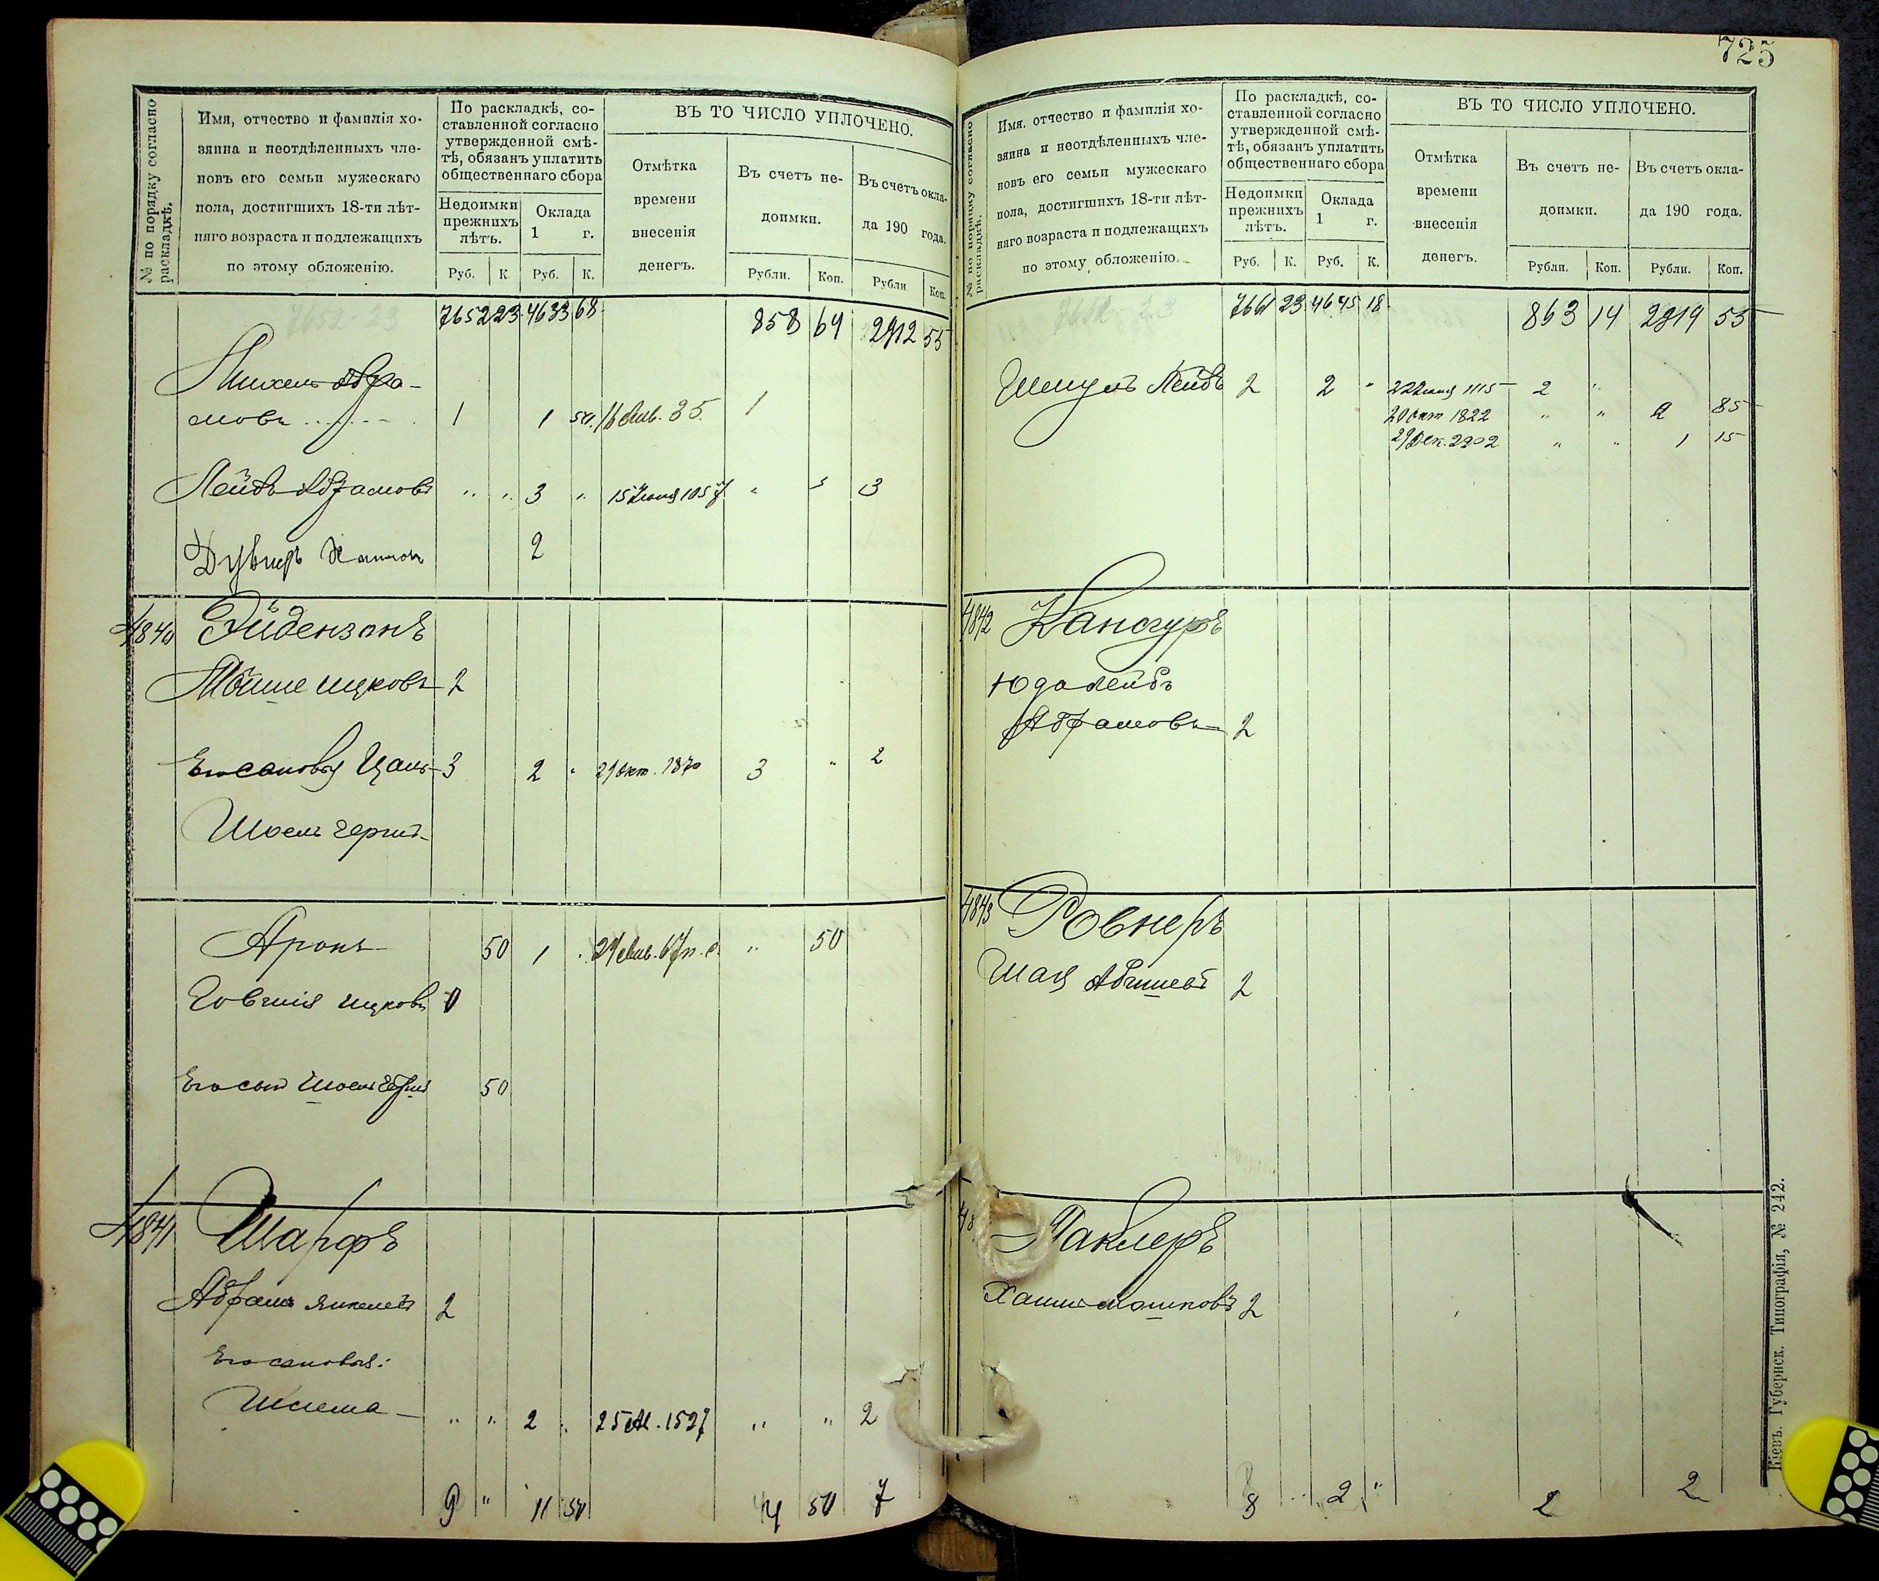 725
№ по порядку согласно раскладкѣ.
Имя, отчество и фамилія хо-
зяина и неотдѣленныхъ чле-
новъ его семьи мужескаго
пола, достигшихъ 18-ти лѣт-
няго возраста и подлежащихъ
по этому обложенію.
По раскладкѣ, со-
ставленной согласно
утвержденной смѣ-
тѣ, обязанъ уплатить
общественнаго сбора
Недоимки
прежнихъ
лѣтъ.
Оклада
1 г.
Руб. К. Руб. К.
ВЪ ТО ЧИСЛО УПЛОЧЕНО.
Отмѣтка
времени
внесенія
денегъ.
Въ счетъ не-
доимки.
Въ счетъ окла-
да 190 года.
Рубли. Коп. Рубли Коп.
7652 23 4633 68 858 64 2812 55
Михель Абра-
мовъ 1 1 50 16 Янв. 35. 1
Лейбъ Абрамовъ " " 3 " 15 Іюня 1057 " " 3
2
4840 Эйдензонъ
Мойше Ицковъ 2
Его сыновья 3 2 " 21 Окт. 1870 3 " 2
Шоель Герш
Аронъ 50 1 " " 50
Говшія Ицковъ
Его сын Шоель Герш 50
4841 Шарфъ
Абрамъ Янкелев 2
Его сыновья:
Шлема " " 2 " 1527 " " 2
9 " 11 50 4 50 7
№ по порядку согласно раскладкѣ.
Имя, отчество и фамилія хо-
зяина и неотдѣленныхъ чле-
новъ его семьи мужескаго
пола, достигшихъ 18-ти лѣт-
няго возраста и подлежащихъ
по этому обложенію.
По раскладкѣ, со-
ставленной согласно
утвержденной смѣ-
тѣ, обязанъ уплатить
общественнаго сбора
Недоимки
прежнихъ
лѣтъ.
Оклада
1 г.
Руб. К. Руб. К.
ВЪ ТО ЧИСЛО УПЛОЧЕНО.
Отмѣтка
времени
внесенія
денегъ.
Въ счетъ не-
доимки.
Въ счетъ окла-
да 190 года.
Рубли. Коп. Рубли. Коп.
7661 23 4645 18 863 14 2819 55
Шмуль Лейбъ 2 2 " 22 Іюня 1115 2 "
20 Окт 1822 " " 85
29 Дек. 2202 " " 1 15
4842 Кангуръ
Юда Лейбъ
Абрамовъ 2
4843 Ровнеръ
Шая 2
Паклеръ
Хаим Мошковъ 2
8 2 " 2 2
Кіевъ. Губернск. Типографія, № 242.